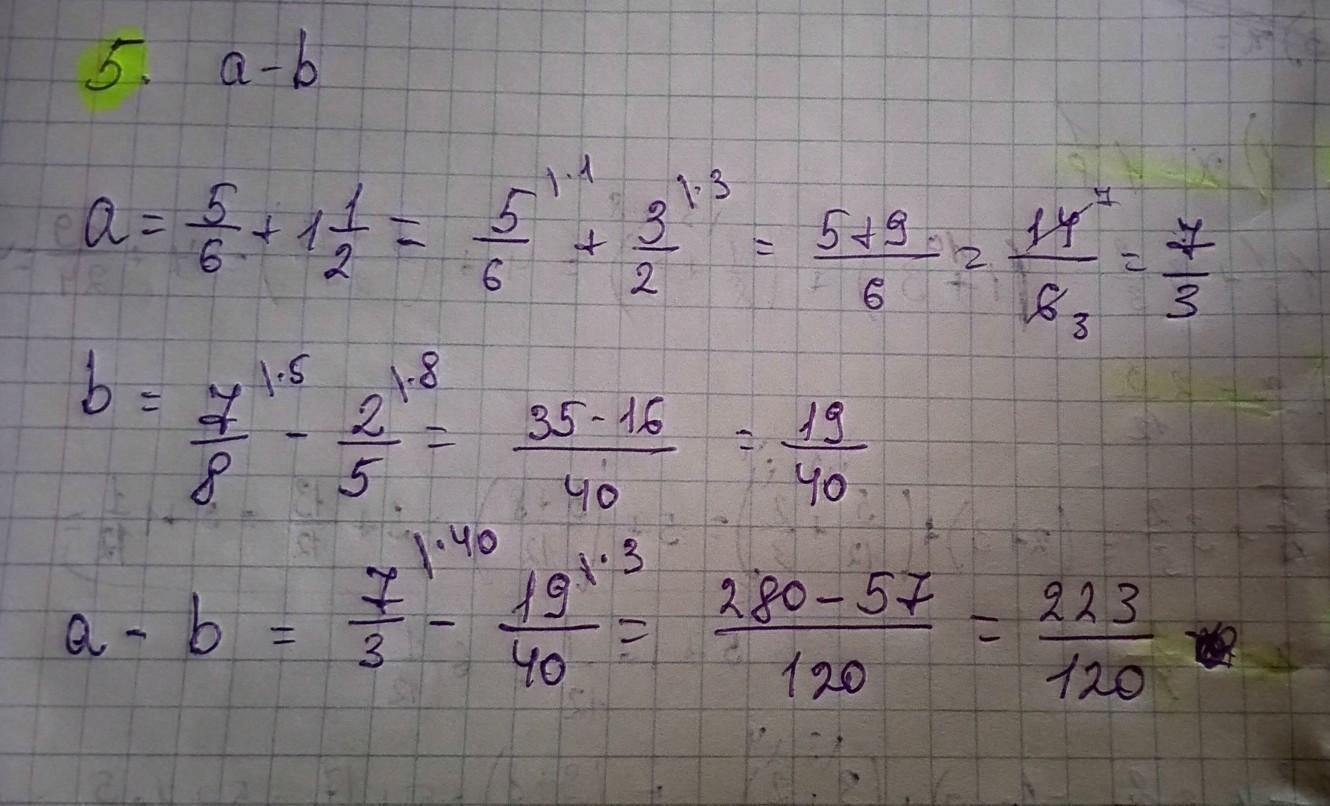 5. a-b
a = 5/6 + 1 1/2 = 5/6 \·1 + 3/2 \·3 = 5+9/6 = 14 7/6 3 = 7/3
b = 7/8 \·5 - 2/5 \·8 = 35-16/40 = 19/40
a - b = 7/3 \·40 - 19/40 \·3 = 280-57/120 = 223/120